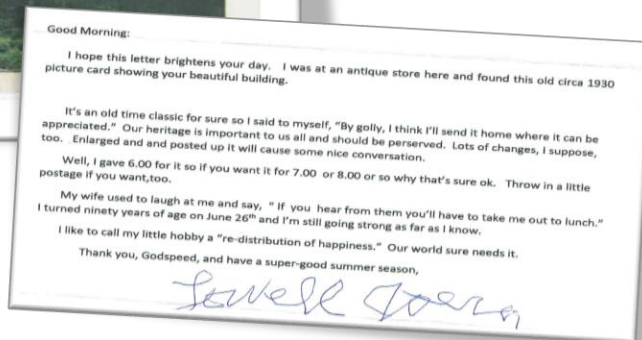 Good Morning:
I hope this letter brightens your day. I was at an antique store here and found this old circa 1930
picture card showing your beautiful building.
It's an old time classic for sure so I said to myself, "By golly, I think I'll send it home where it can be
appreciated." Our heritage is important to us all and should be perserved. Lots of changes, I suppose,
too. Enlarged and and posted up it will cause some nice conversation.
Well, I gave 6.00 for it so if you want it for 7.00 or 8.00 or so why that's sure ok. Throw in a little
postage if you want,too.
My wife used to laugh at me and say, " If you hear from them you'll have to take me out to lunch."
I turned ninety years of age on June 26th and I'm still going strong as far as I know.
I like to call my little hobby a "re-distribution of happiness." Our world sure needs it.
Thank you, Godspeed, and have a super-good summer season,
Lowell